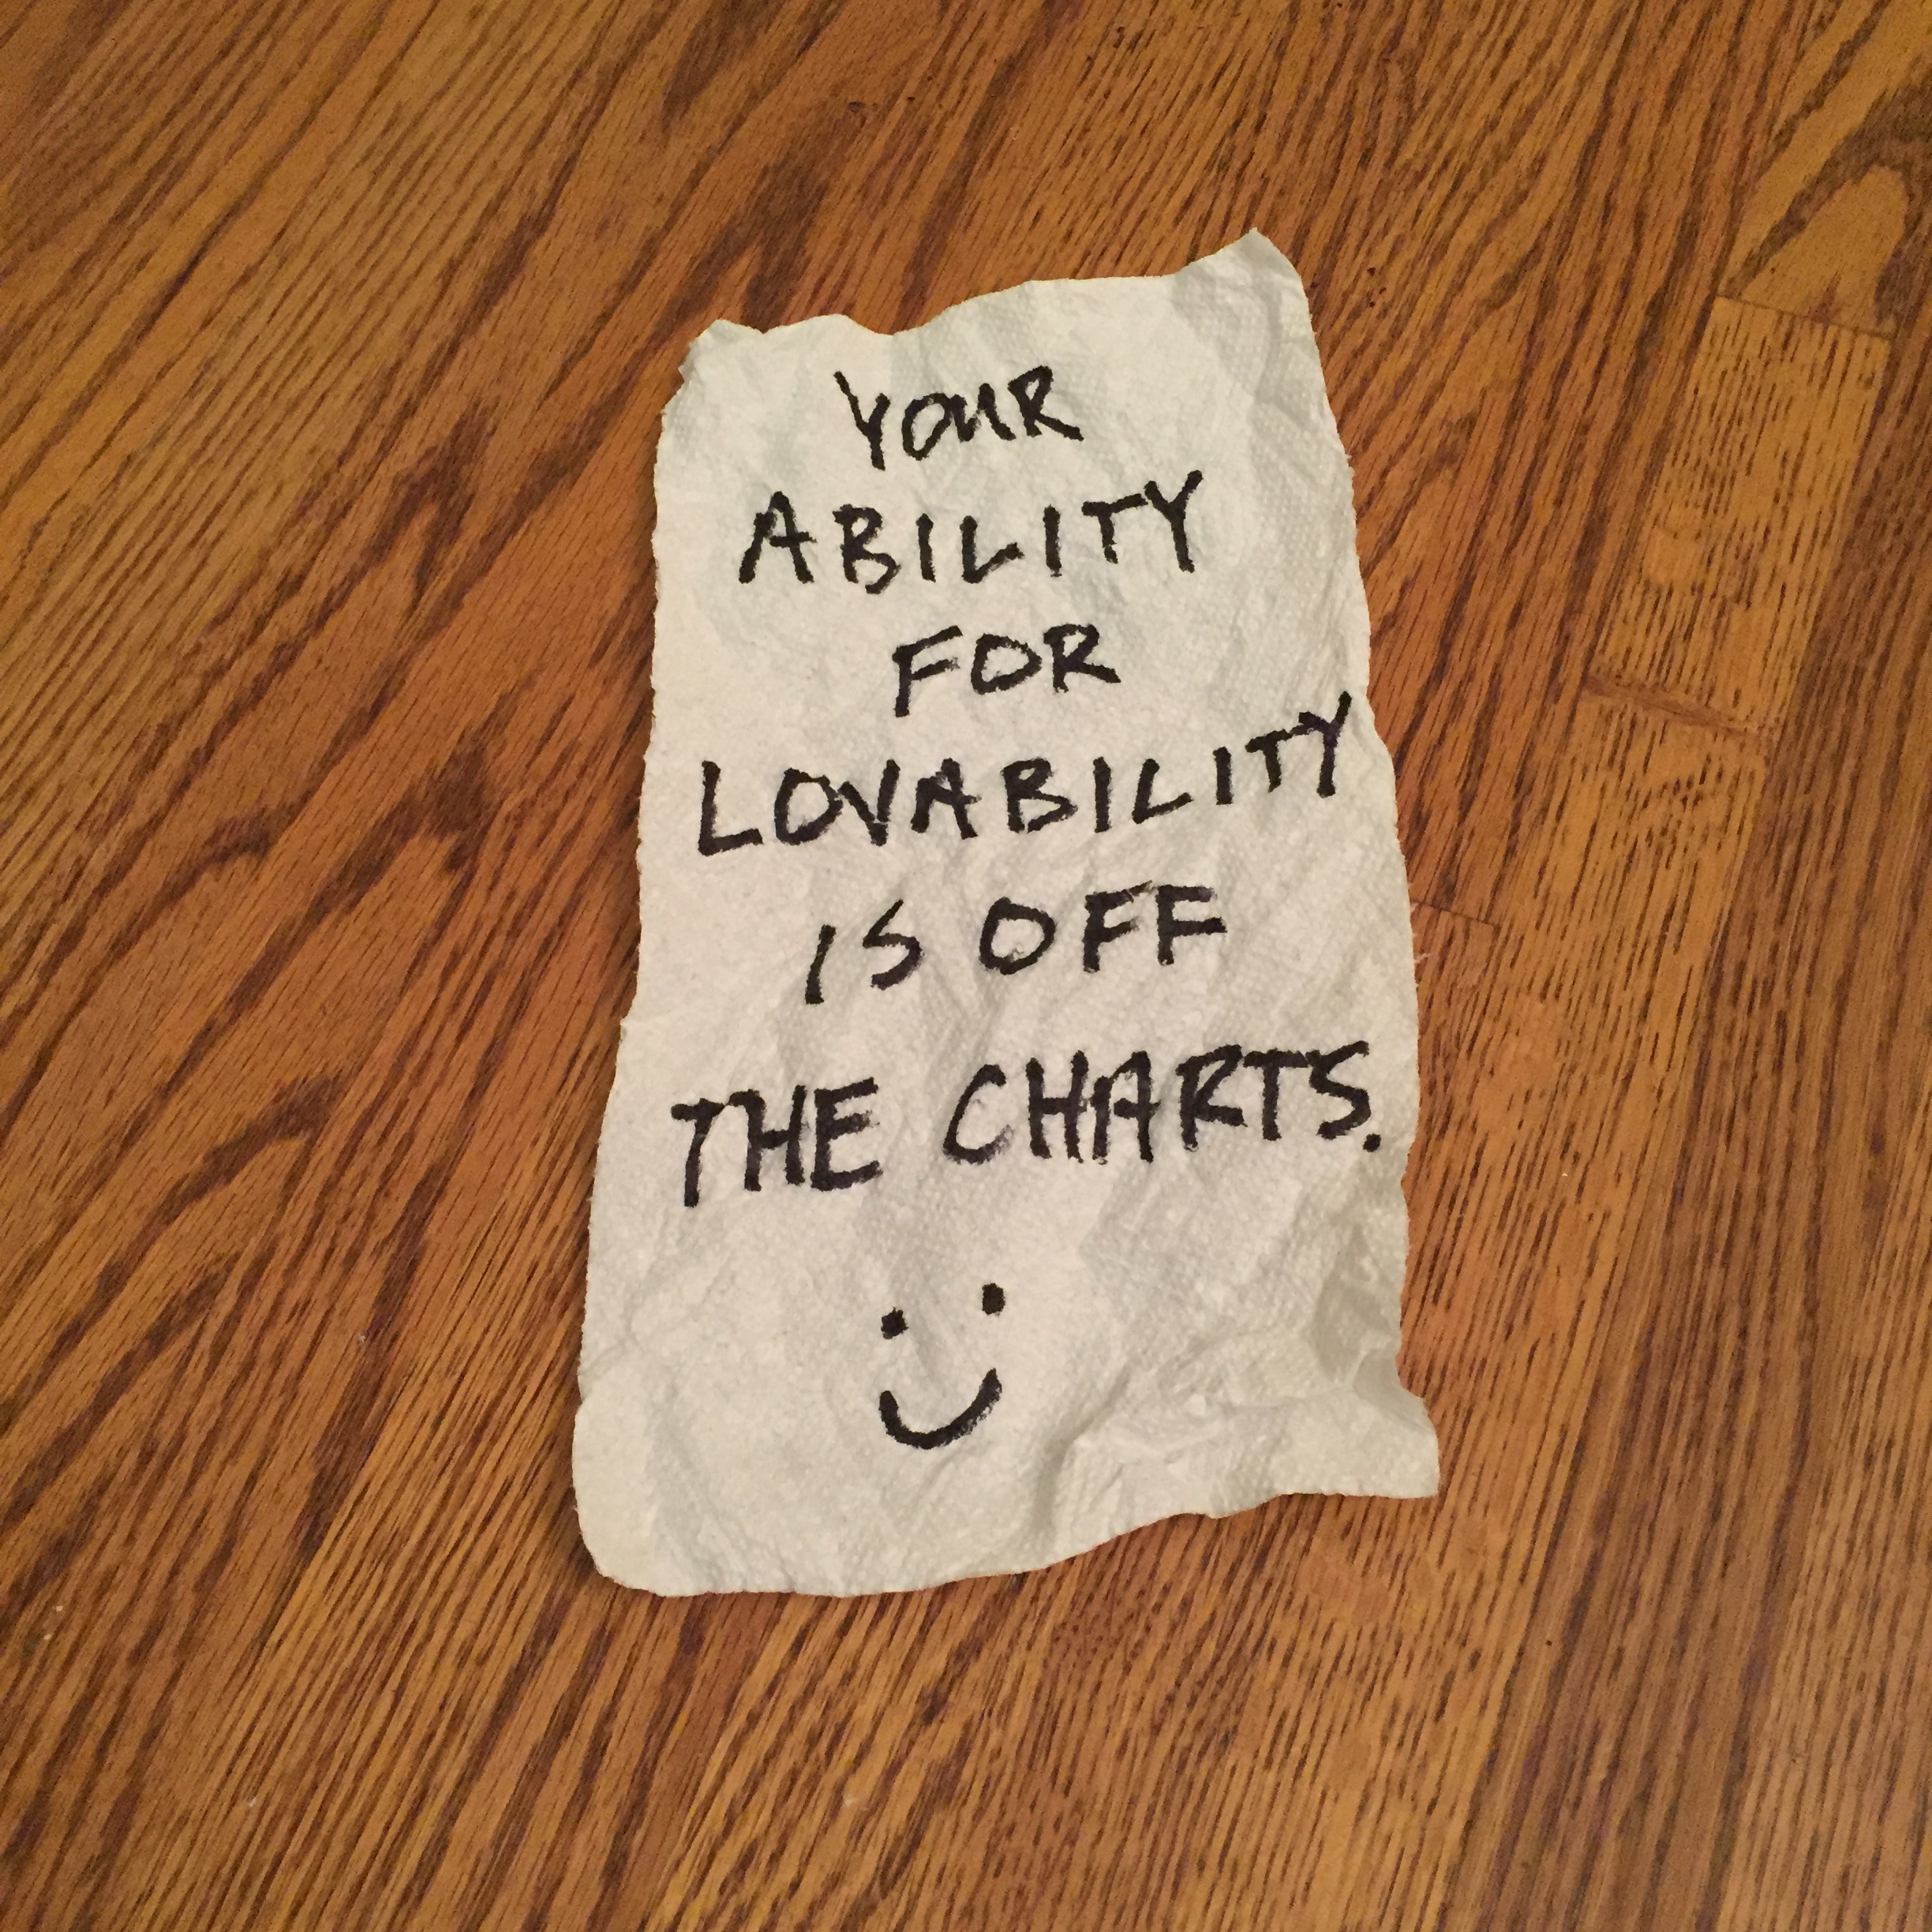 YOUR
ABILITY
FOR
LOVABILITY
IS OFF
THE CHARTS.